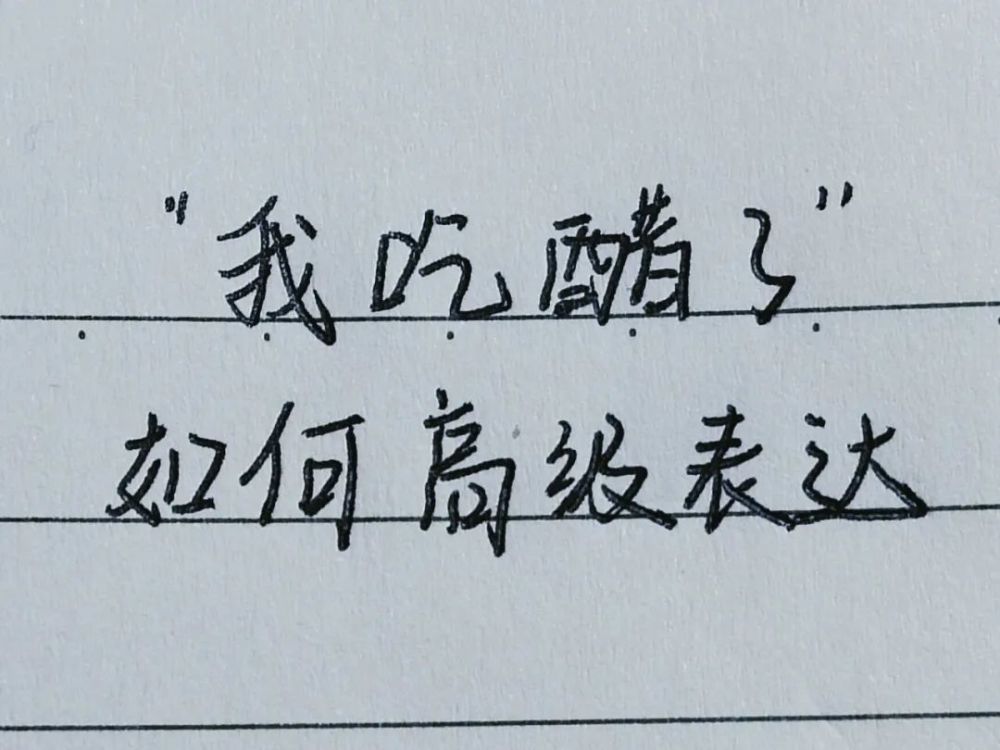 "我吃醋了"
如何高级表达